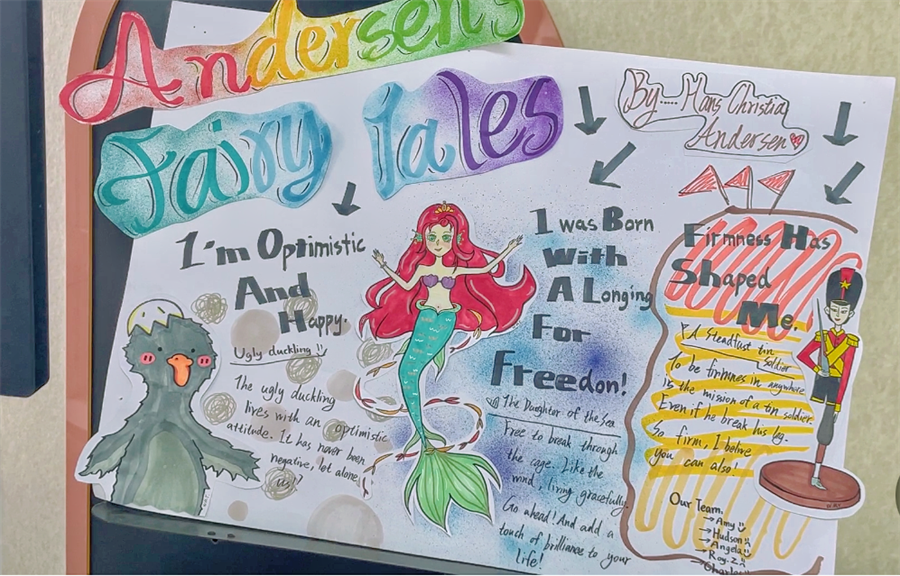 Andersen's
Fairy Tales
By.... Hans Christia
Andersen
I'm Optimistic
And
Happy.
Ugly duckling
The ugly duckling
lives with an optimistic
attitude. It has never been
negative, let alone
us!
I was Born
With
A Longing
For
Freedon!
The Daughter of the Sea
Free to break through
the cage. Like the
mnd, living gracefully.
Go ahead! And add a
touch of brilliance to your
life!
Firmness Has
Shaped
Me.
A steadfast tin
soldier
To be firmness in anywhere
is the mission of a tin soldier.
Even if he break his leg.
So firm, I belive
you can also!
Our Team.
→Amy
→Hudson
→Angela
→Roy.Z
→Charles